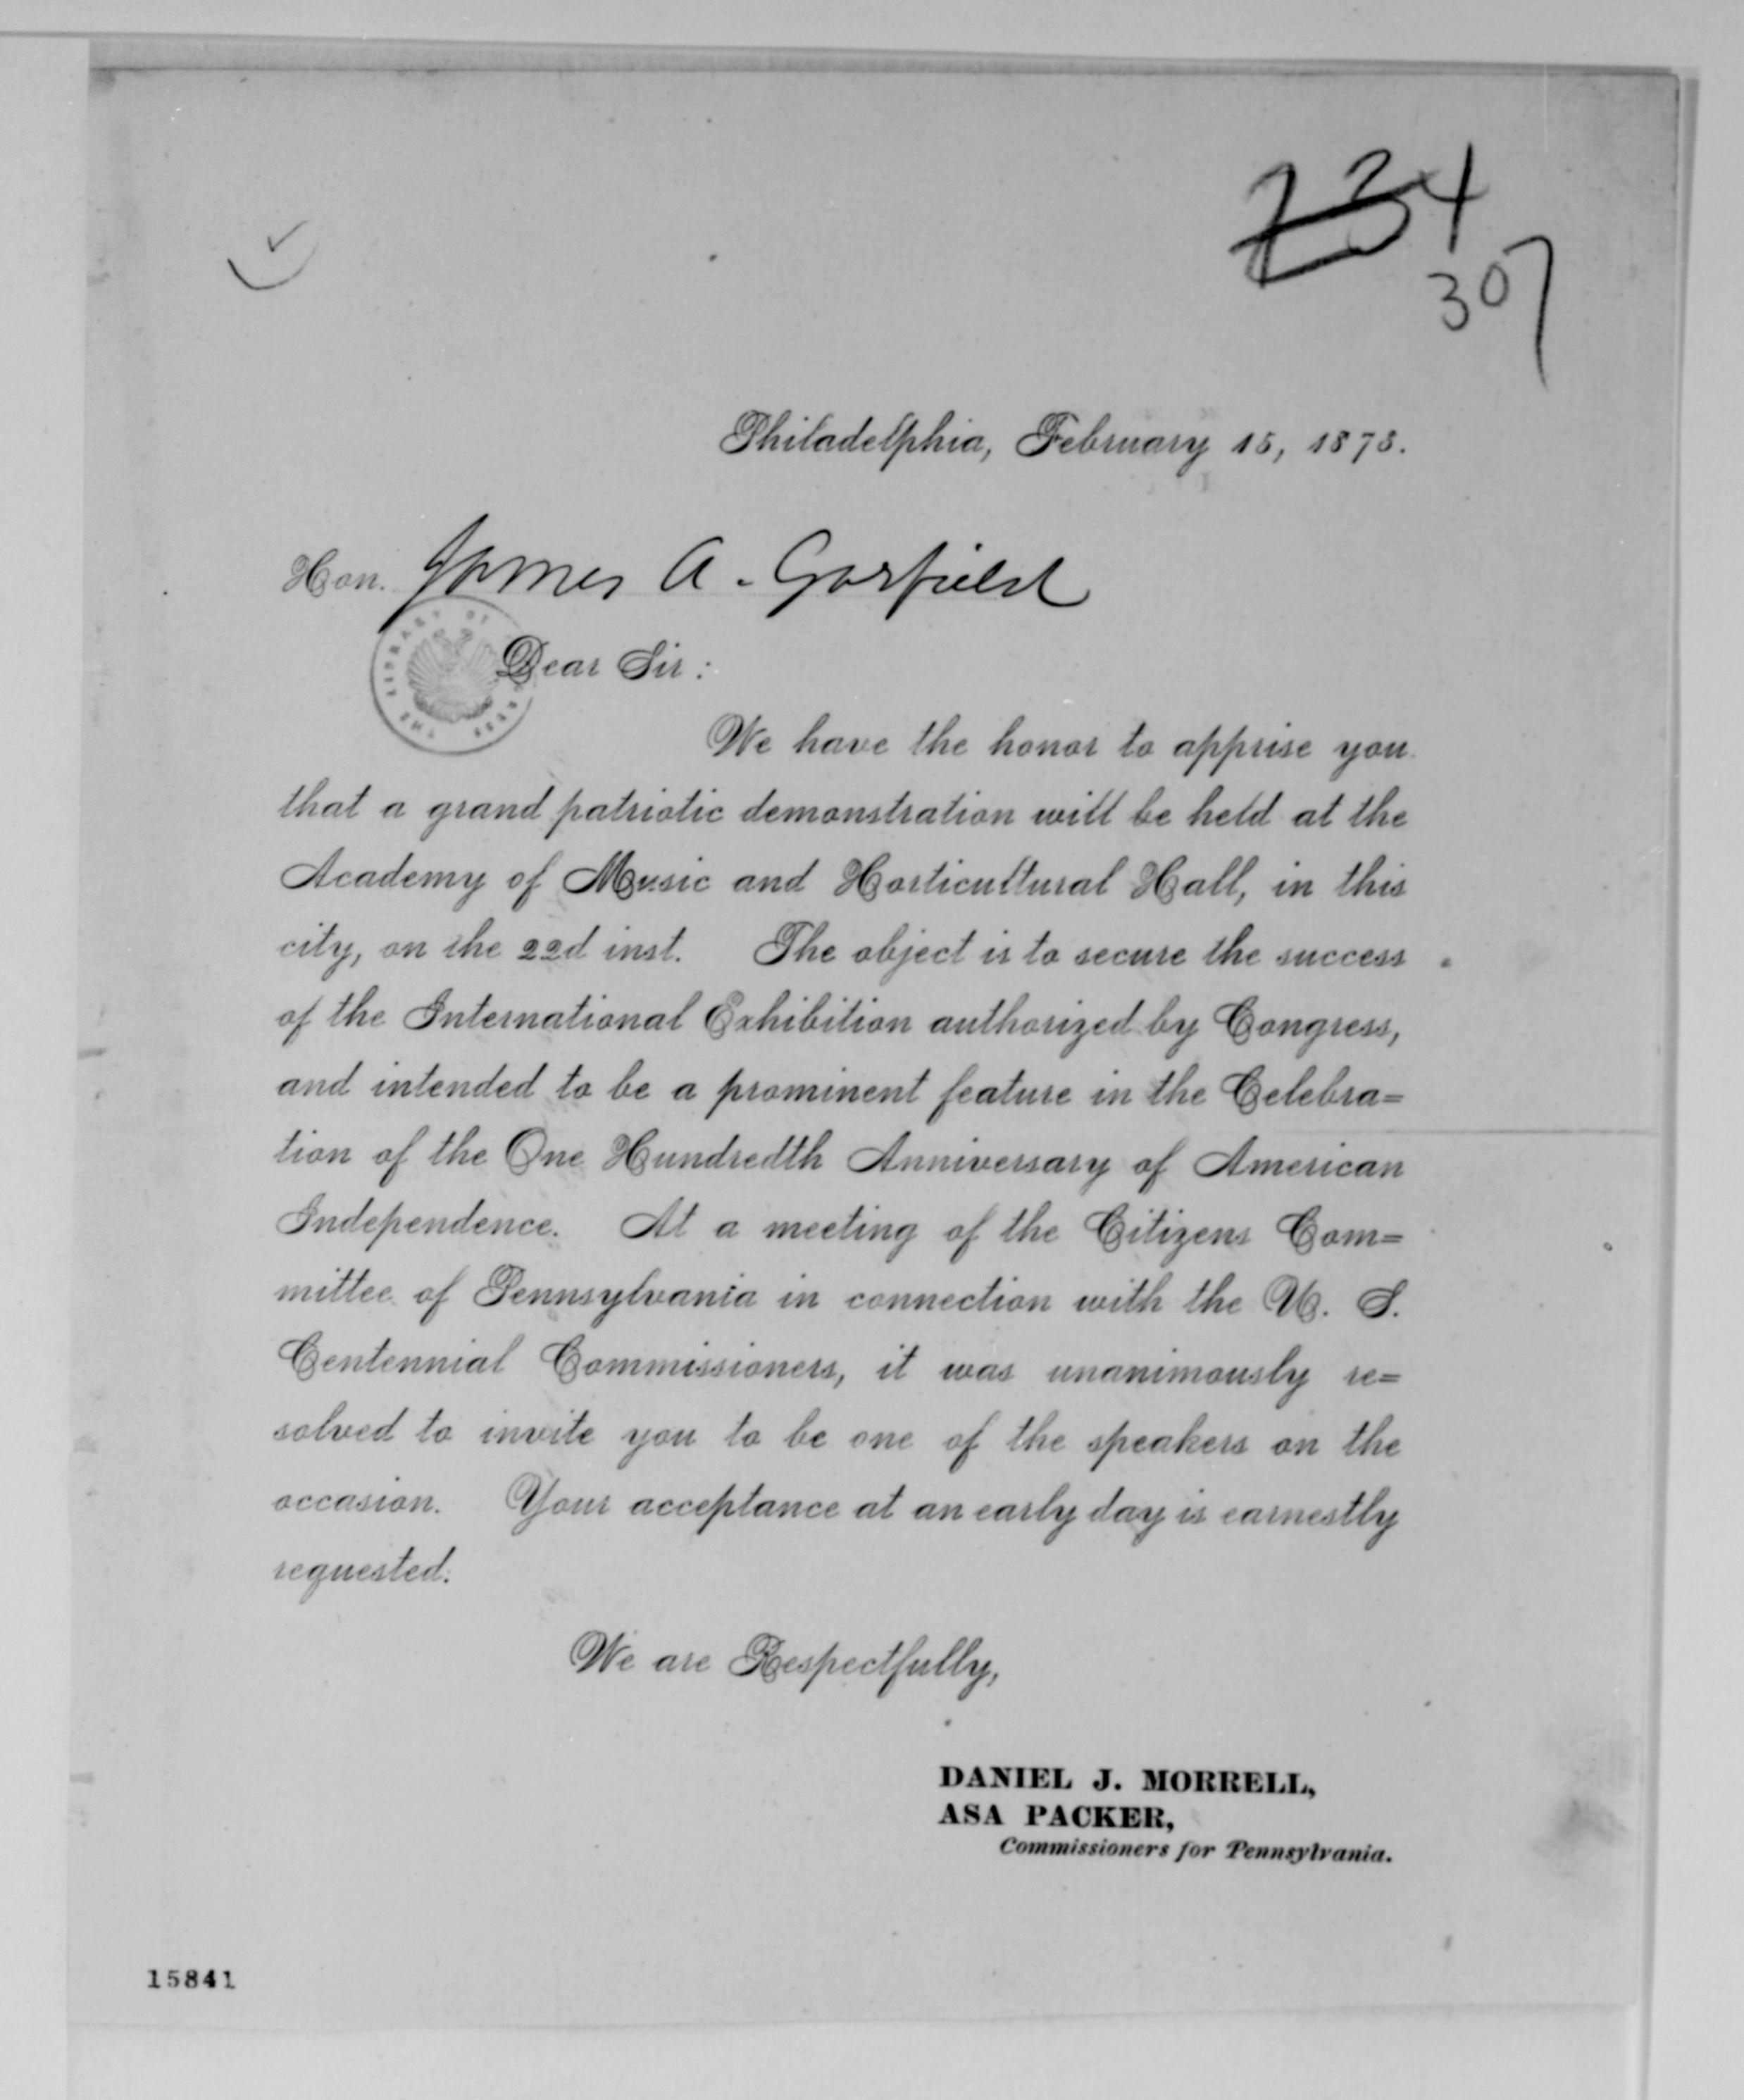 234
307
Philadelphia, February 15, 1873.
Hon. James A. Garfield
THE LIBRARY OF CONGRESS
Dear Sir:
We have the honor to apprise you
that a grand patriotic demonstration will be held at the
Academy of Music and Horticultural Hall, in this
city, on the 22d inst. The object is to secure the success
of the International Exhibition authorized by Congress,
and intended to be a prominent feature in the Celebra=
tion of the One Hundredth Anniversary of American
Independence. At a meeting of the Citizens Com=
mittee of Pennsylvania in connection with the U. S.
Centennial Commissioners, it was unanimously re=
solved to invite you to be one of the speakers on the
occasion. Your acceptance at an early day is earnestly
requested.
We are Respectfully,
DANIEL J. MORRELL,
ASA PACKER,
Commissioners for Pennsylvania.
15841